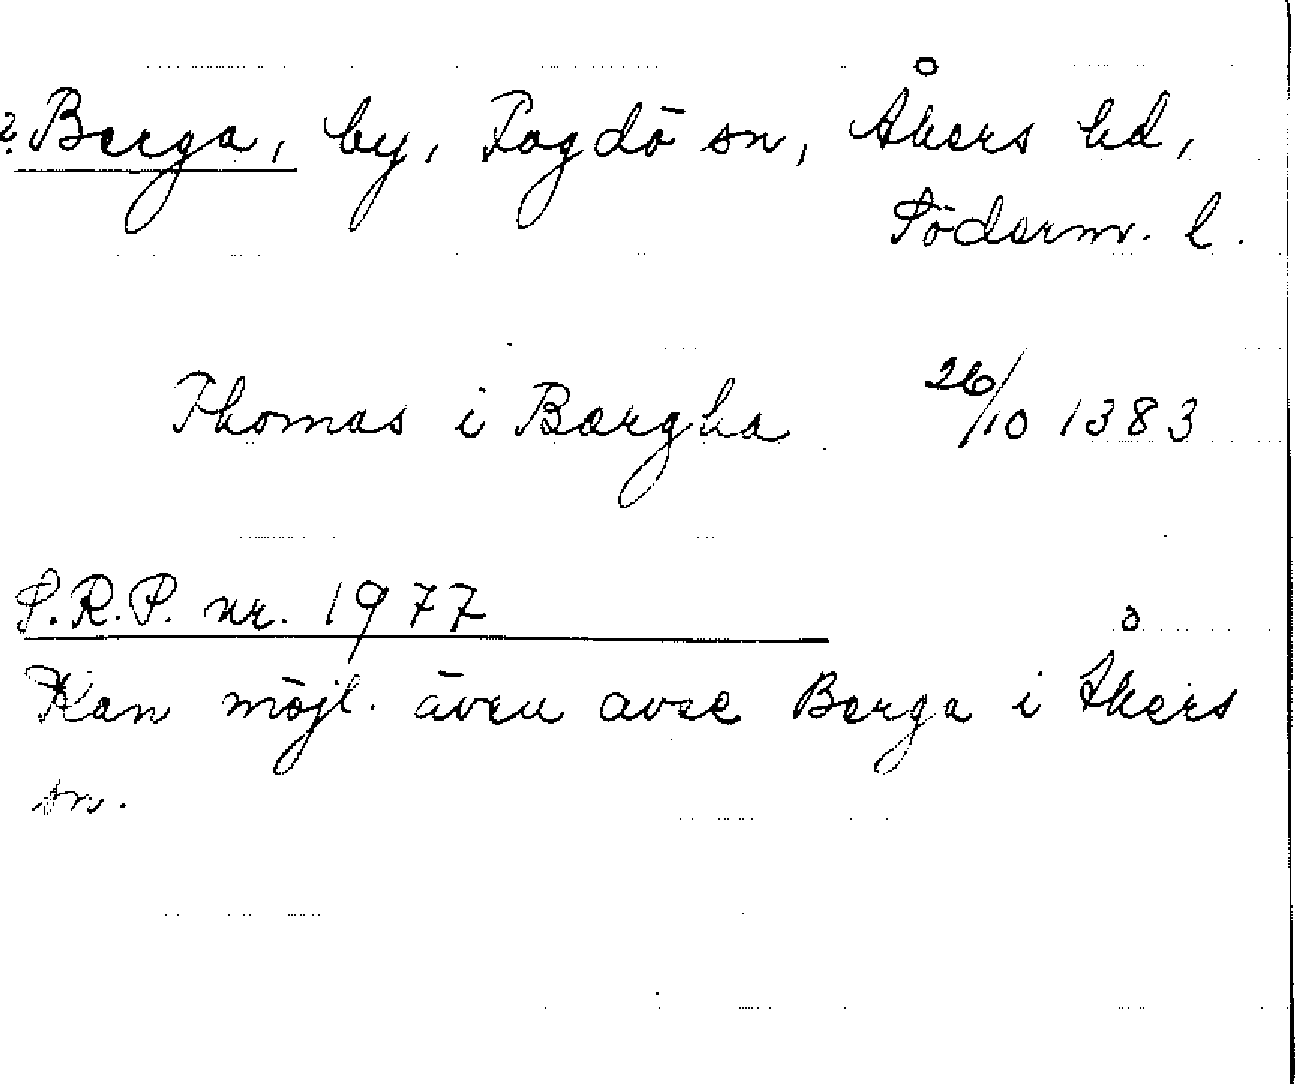 ? Berga, by, Fogdö sn, Åkers hd,
Söderm. l.
Thomas i Bærgha 26/10 1383
S.R.P. nr. 1977
Kan möjl. även avse Berga i Åkers
sn.